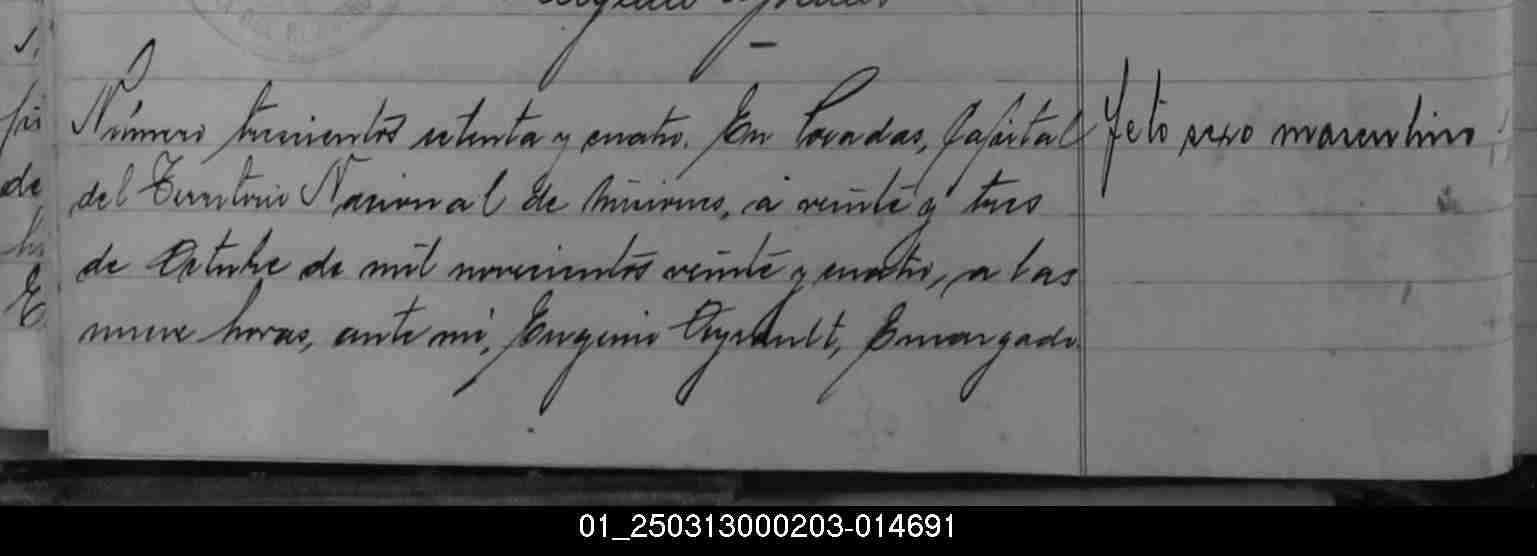 Número trescientos setenta y cuatro. En Posadas, Capital
del Territorio Nacional de Misiones, a veinte y tres
de Octubre de mil novecientos veinte y cuatro, a las
nueve horas, ante mi, Eugenio Ayrault, Encargado
feto sexo masculino
de
01_250313000203-014691